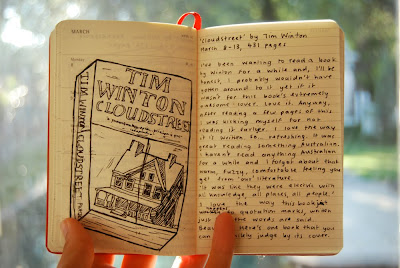 MARCH
TIM
WINTON
CLOUDSTREET
TIM WINTON CLOUDSTREET
'Cloudstreet' by Tim Winton.
March 8-13, 431 pages
I've been wanting to read a book
by Winton for a while and, I'll be
honest, I probably wouldn't have
gotten around to it yet if it
wasn't for this book's extremely
awesome cover. Love it. Anyway,
after reading a few pages of this
I was kicking myself for not
reading it earlier. I love the way
it is written to... refreshing. It was
great reading something Australian.
I haven't read anything Australian
for a while and I forgot about that
warm, fuzzy, comfortable feeling you
get from 'our' literature.
"It was like they were electric with
all knowledge, all places, all people."
I love the way this book just
happens
no quotation marks, when
just the words are said.
Here's one book that you
can judge by its cover.